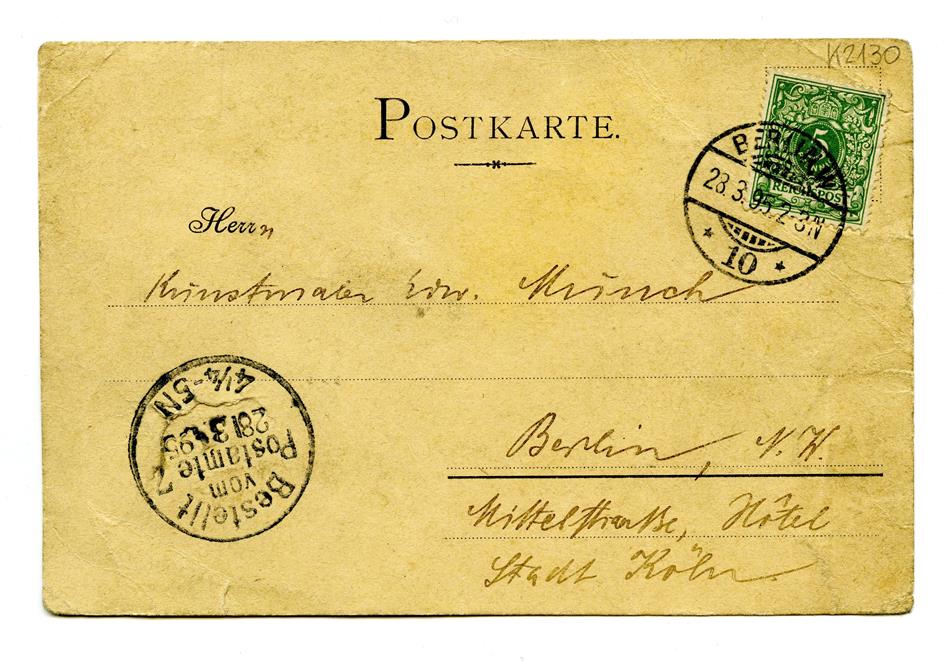 K2130
POSTKARTE.
5
REICHSPOST
BERLIN, N.W.
28.3.95.2-3N
* 10 *
Herrn
Kunstmaler Edv. Munch
Berlin, N.W.
Mittelstraße, Hôtel
Stadt Köln
Bestellt
vom
Postamte 7
28/3 95
4¼-5N